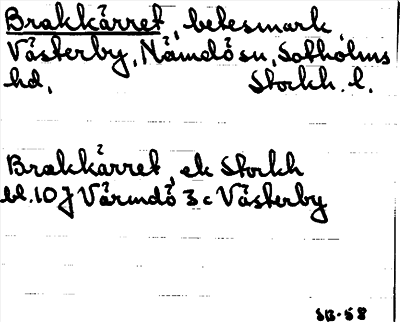 Brakkärret, betesmark,
Västerby, Nämdö sn, Sotholms
hd, Stockh. l.
Brakkärret, ek Stockh
bl. 10 J Värmdö 3 c Västerby
SB-58